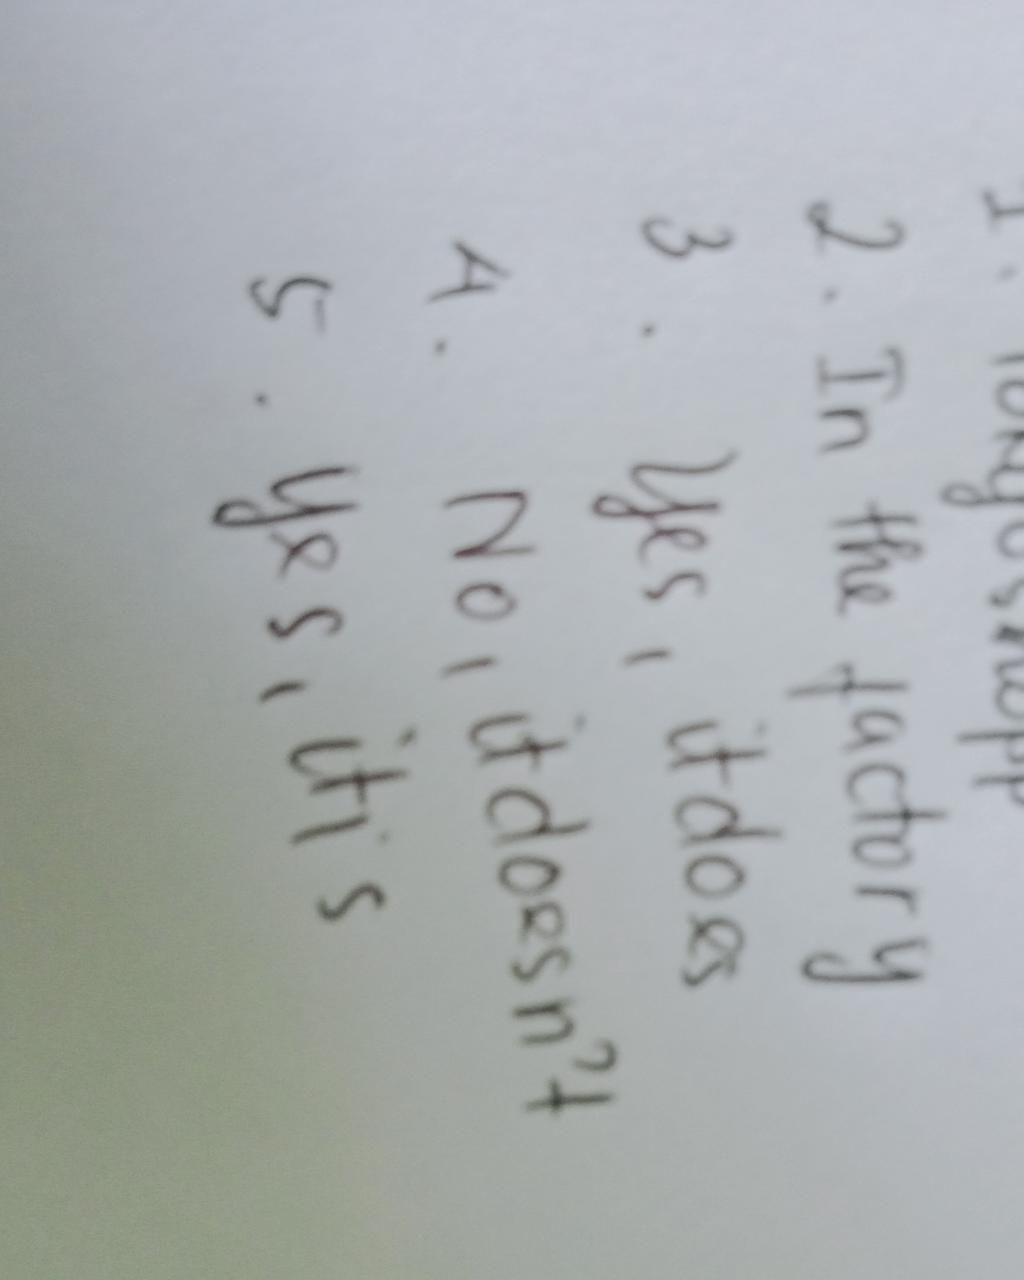 2. In the factory
3. Yes, it does
4. No, it doesn't
5. Yes, it is